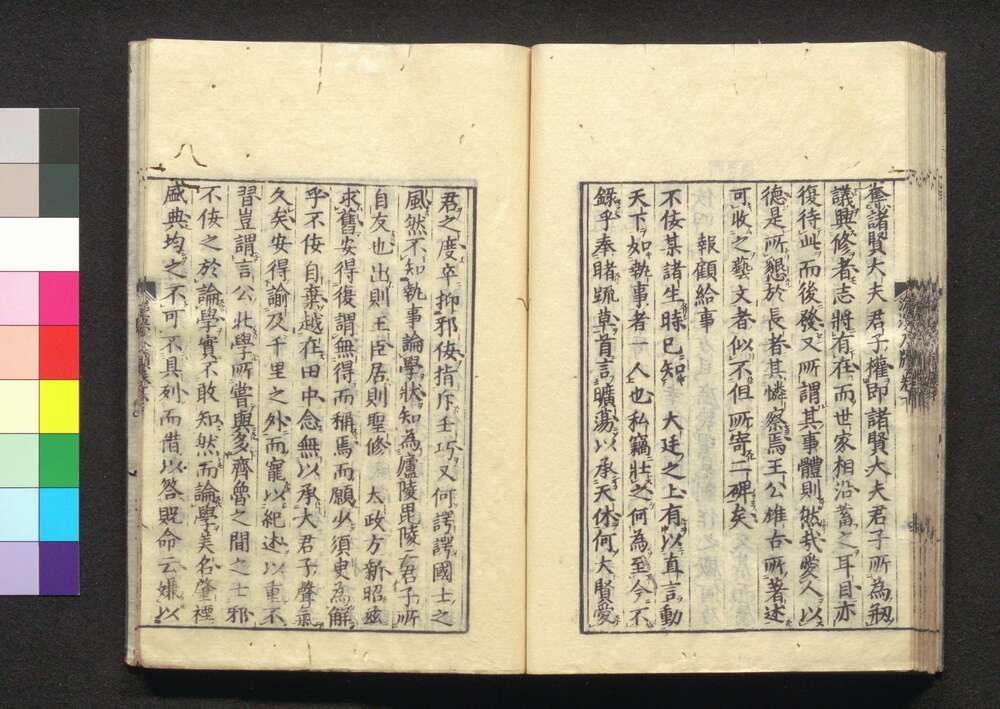 奪諸賢大夫君子權即諸賢大夫君子所為剏
議興修者志將有在而世家相沿蓄之耳目亦
復待此而後發又所謂其事體則然我愛人以
德是所懇於長者其憐察焉王公雄古所著述
可收之藝文者似不但所寄二碑矣
報顧給事
不佞某諸生時已知大廷之上有以直言動
天下如執事者一人也私竊壯之何為至今不
錄乎奉睹疏草首言曠蕩以承天休何大賢愛
君之度卒抑邪佞指斥壬巧又何諤諤國士之
風然不知執事論學狀知為廬陵毘陵二君子所
自友也出則王臣居則聖修大政方新昭茲
求舊安得復謂無得而稱焉而願少須臾為解
乎不佞自棄越在田中念無以承大君子聲氣
久矣安得諭及千里之外而寵以紀述以重不
習豈謂言公北學所嘗與多齊魯之間之士邪
不佞之於論學實不敢知然而論學美名肇禋
盛典均之不可不具列而借以答貺命云嫌以
八